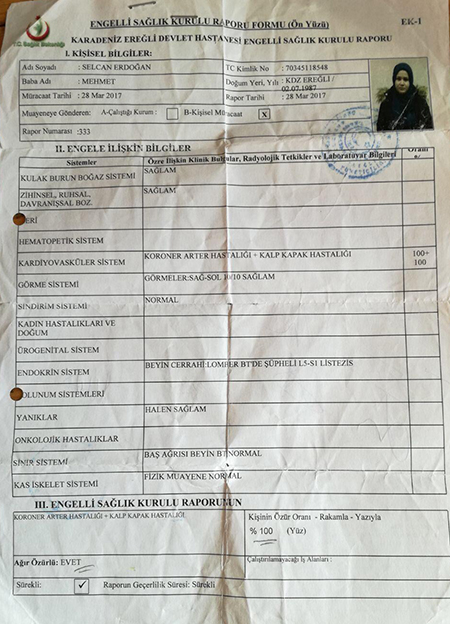 ENGELLİ SAĞLIK KURULU RAPORU FORMU (Ön Yüzü) EK-1
T.C. Sağlık Bakanlığı
KARADENİZ EREĞLİ DEVLET HASTANESİ ENGELLİ SAĞLIK KURULU RAPORU
I. KİŞİSEL BİLGİLER:
Adı Soyadı : SELCAN ERDOĞAN TC Kimlik No : 70345118548
Baba Adı : MEHMET Doğum Yeri, Yılı : KDZ EREĞLİ / 02.07.1987
Müracaat Tarihi : 28 Mar 2017 Rapor Tarihi : 28 Mar 2017
Muayeneye Gönderen: A-Çalıştığı Kurum : B-Kişisel Müracaat X
Rapor Numarası :333
II. ENGELE İLİŞKİN BİLGİLER
Sistemler Özre İlişkin Klinik Bulgular, Radyolojik Tetkikler ve Laboratuvar Bilgileri Oranı
KULAK BURUN BOĞAZ SİSTEMİ SAĞLAM
ZİHİNSEL, RUHSAL, DAVRANIŞSAL BOZ. SAĞLAM
HEMATOPETİK SİSTEM
KARDİYOVASKÜLER SİSTEM KORONER ARTER HASTALIĞI + KALP KAPAK HASTALIĞI 100+ 100
GÖRME SİSTEMİ GÖRMELER:SAĞ-SOL 10/10 SAĞLAM
SİNDİRİM SİSTEMİ NORMAL
KADIN HASTALIKLARI VE DOĞUM
ÜROGENİTAL SİSTEM
ENDOKRİN SİSTEM BEYİN CERRAHİ:LOMBER BT'DE ŞÜPHELİ L5-S1 LİSTEZİS
SOLUNUM SİSTEMLERİ
YANIKLAR HALEN SAĞLAM
ONKOLOJİK HASTALIKLAR
SİNİR SİSTEMİ BAŞ AĞRISI BEYİN BT NORMAL
KAS İSKELET SİSTEMİ FİZİK MUAYENE NORMAL
III. ENGELLİ SAĞLIK KURULU RAPORUNUN
KORONER ARTER HASTALIĞI + KALP KAPAK HASTALIĞI Kişinin Özür Oranı - Rakamla - Yazıyla
% 100 (Yüz)
Ağır Özürlü: EVET Çalıştırılamayacağı İş Alanları :
Sürekli: ✓ Raporun Geçerlilik Süresi: Sürekli